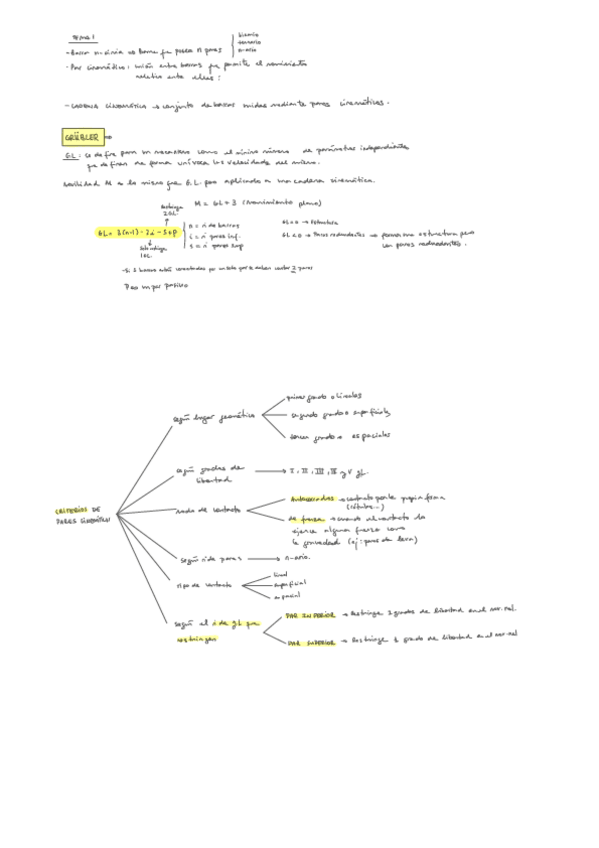 TEMA 1
-Barra n-aria es barra que posee n pares
binario
ternario
n-ario
-Par cinemático: unión entre barras que permite el movimiento
relativo entre ellas:
-CADENA CINEMÁTICA → conjunto de barras unidas mediante pares cinemáticos.
GRÜBLER
GL: se define para un mecanismo como el mínimo número de parámetros independientes
que definen de forma unívoca las velocidades del mismo.
Movilidad M es lo mismo que G.L. pero aplicado a una cadena cinemática.
M = GL + 3 (movimiento plano)
restringe
2GL.
GL= 3(n-1) - 2i - s+p
n = nº de barras
i = nº pares inf.
s = nº pares sup
1GL.
GL=0 → Estructura
GL<0 → Pares redundantes → forma una estructura pero
con pares redundantes.
-Si 3 barras están conectadas por un solo par se deben contar 2 pares
P=
CRITERIOS DE
PARES CINEMÁTICOS
según lugar geométrico
primer grado o lineales
segundo grado → superficiales
tercer grado → espaciales
según grados de
libertad
→ I, II, III, IV y V GL.
modo de contacto
Autocerrados → contacto por la propia forma
(cilindro...)
de fuerza → cuando al contacto lo
ejerce alguna fuerza como
la gravedad (ej: pares de leva)
según nº de pares → n-ario.
tipo de contacto
lineal
superficial
espacial
según el nº de GL que
restringen
PAR INFERIOR → Restringe 2 grados de libertad en el mov. rel.
PAR SUPERIOR → Restringe 1 grado de libertad en el mov. rel